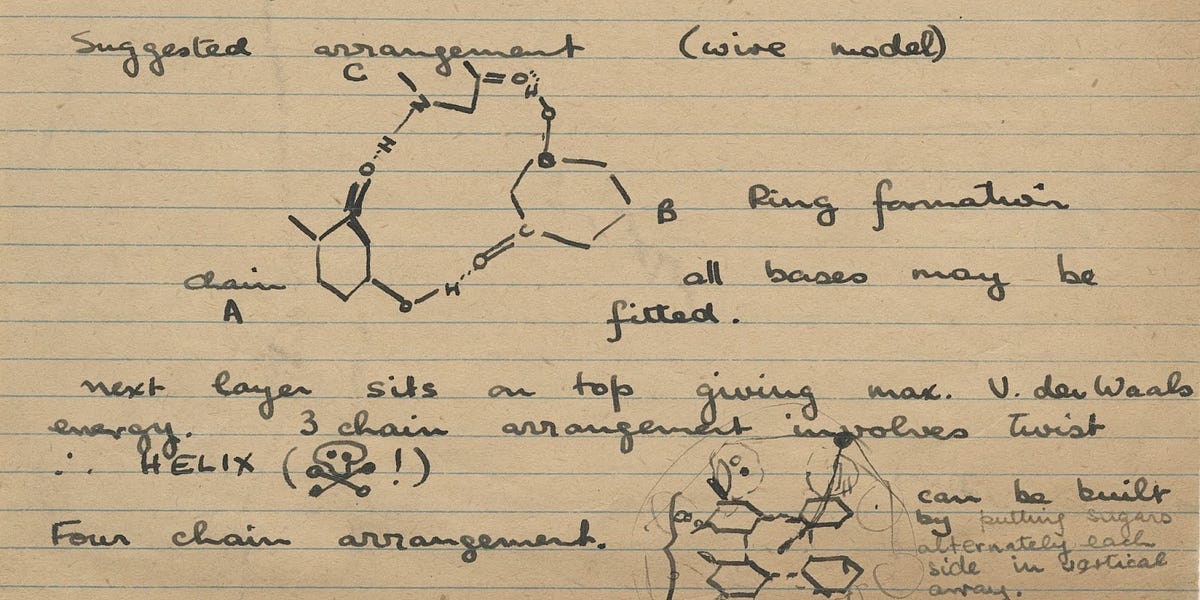 Suggested arrangement (wire model)
C
N =O H
H O
O
B Ring formation
C
O
chain H all bases may be
A O fitted.
next layer sits on top giving max. V. der Waals
energy. 3 chain arrangement involves twist
∴ HELIX (☠!)
can be built
Four chain arrangement. by putting sugars
alternately each
side in vertical
array.